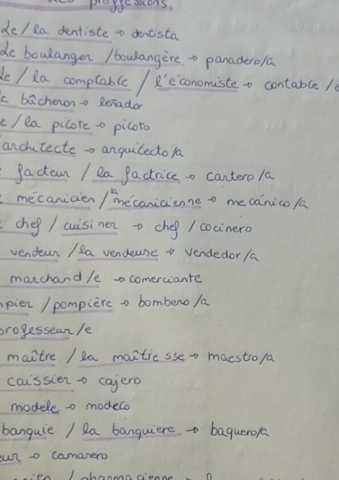 des proffessions.
Le/la dentiste → dentista
Le boulanger /boulangère → panadero/a
Le / la comptable / l'économiste → contable /e
bûcheron → leñador
e / la pilote → piloto
architecte → arquitecto/a
facteur / la factrice → cartero/a
mécanicien / la mécanicienne → mecánico/a
chef / cuisiner → chef / cocinero
vendeur / la vendeuse → vendedor/a
marchand/e → comerciante
mpier / pompière → bombero/a
professeur/e
maître / la maîtresse → maestro/a
caissier → cajero
modele → modelo
banquie / la banquiere → baquero/a
eur → camarero